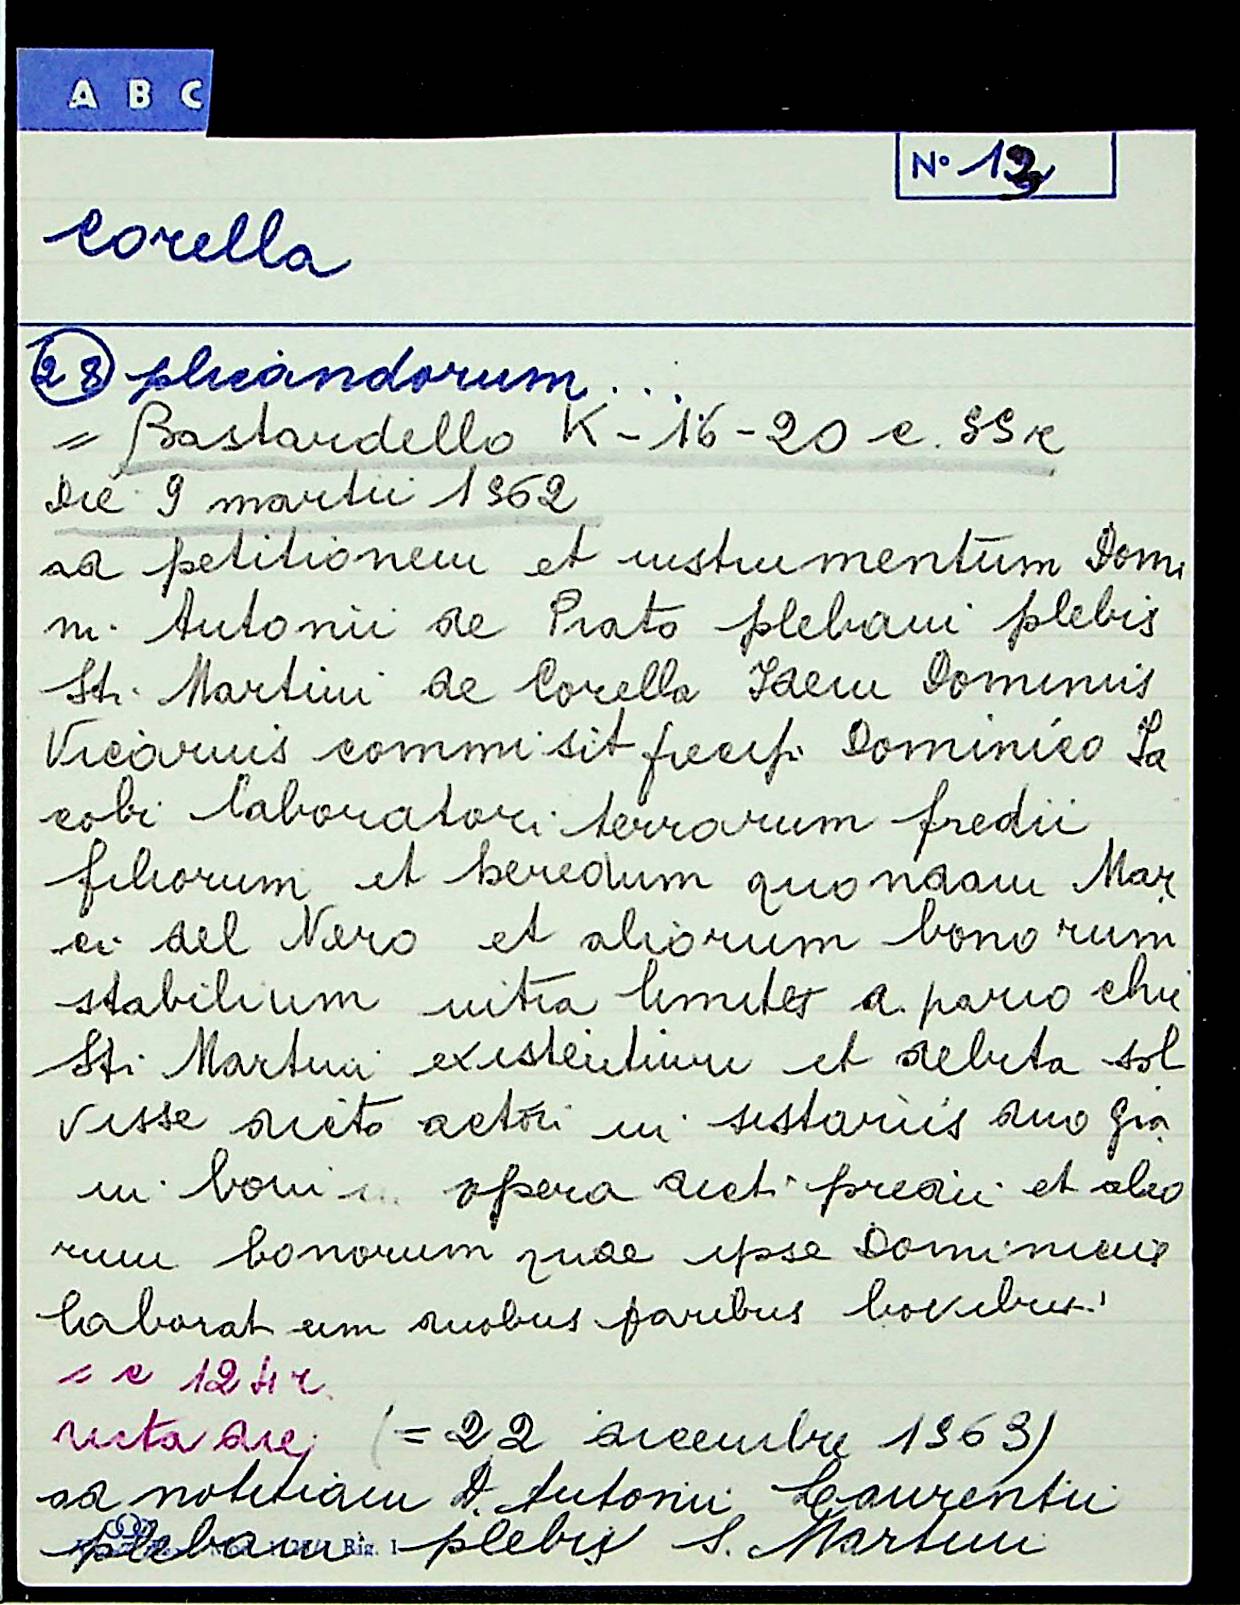 A B C
N° 13
Corella
28 plicandorum...
= Bastardello K-16-20 c. 99r
Die 9 martii 1362
ad petitionem et instrumentum Domi
ni. Antonii de Prato plebani plebis
Sti. Martini de Corella Idem Dominus
Vicarius commisit Dominico Ja
cobi laboratori terrarum fredii
filiorum et heredum quondam Mar
ci del Nero et aliorum bonorum
stabilium intra limites a. parrochie
Sti Martini existentium et debita sol
visse dicto actori in sistariis duo gra
ni boni ... opera dicti predii et alio
rum bonorum quae ipse Dominicus
laborat cum duobus paribus bovibus
= c 124r
ista die (= 22 dicembre 1363)
ad notitiam D. Antonii Laurentii
plebani plebis S. Martini
Rig. 1